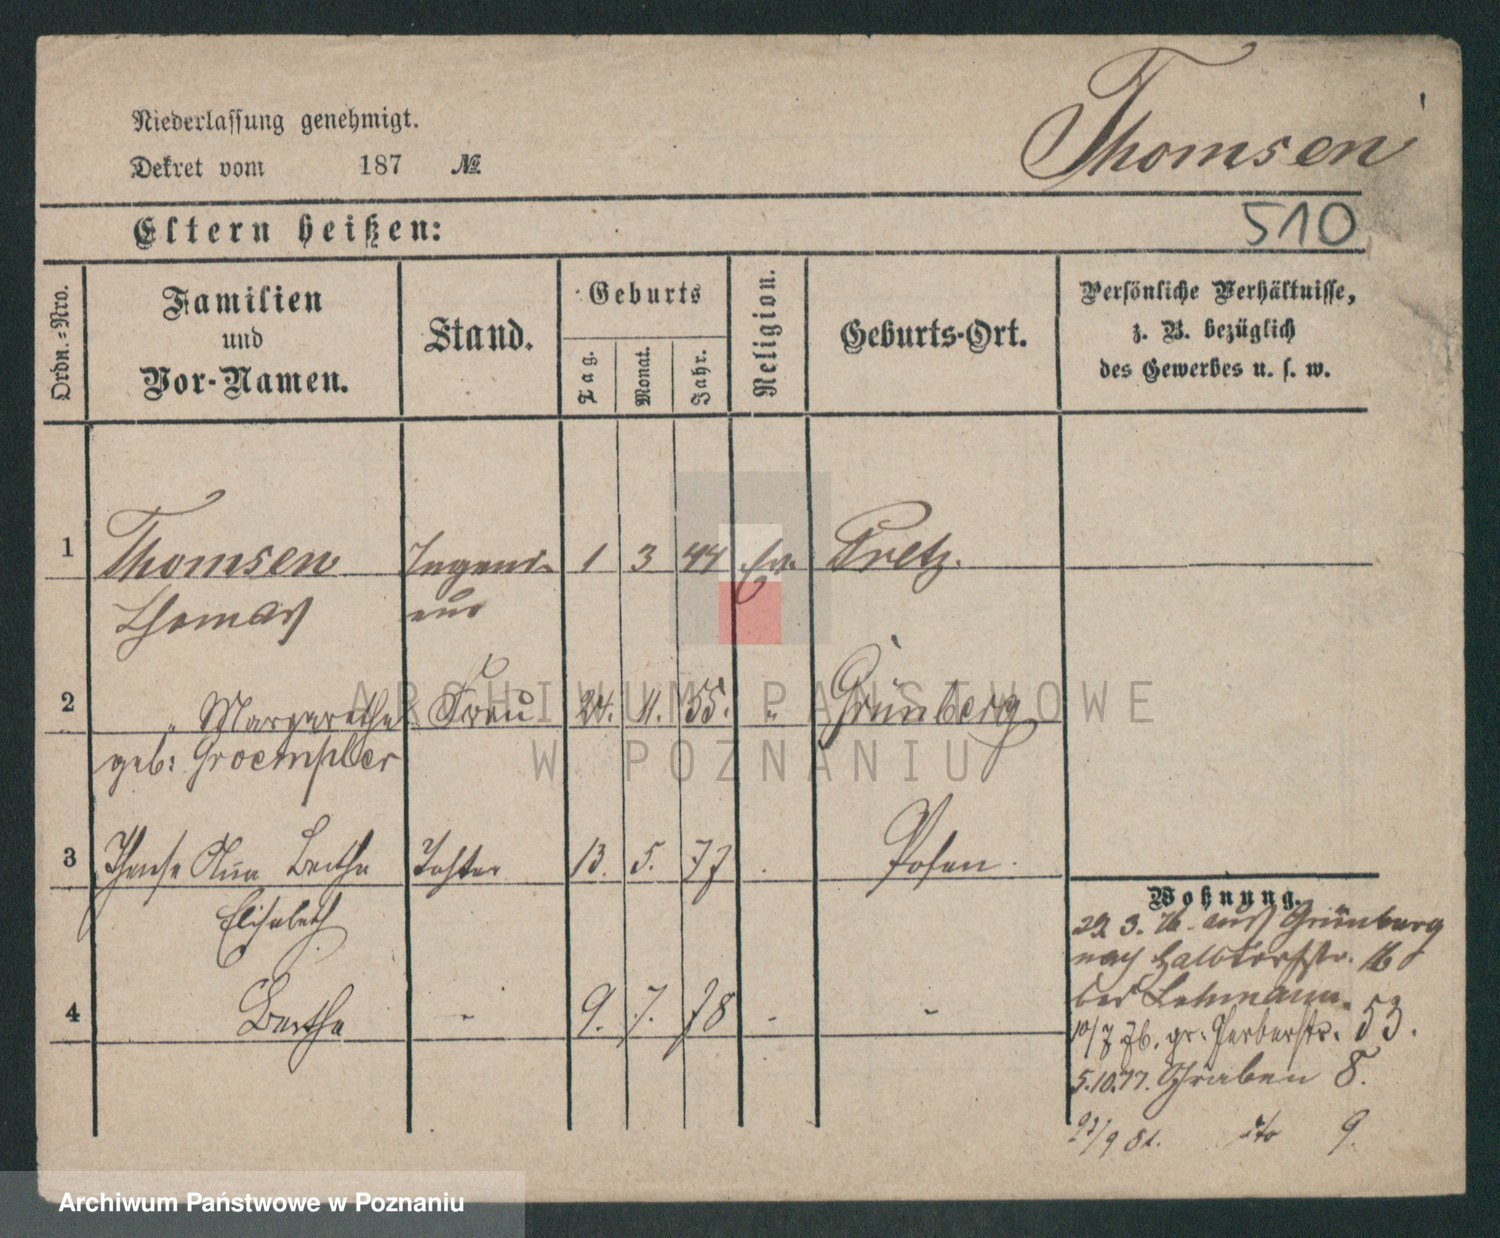 Niederlassung genehmigt.
Dekret vom 187 №
Thomsen
Eltern heißen:
510
Ordn.-Nro.
Familien
und
Vor-Namen.
Stand.
Geburts
Tag.
Monat.
Jahr.
Religion.
Geburts-Ort.
Persönliche Verhältnisse,
z. B. bezüglich
des Gewerbes u. s. w.
1 Thomsen Ingeni- 1 3 44 Ev. Pretz.
Thomas eur
2 " Margarethe Frau 24. 11. 55. " Grünberg
geb: Groempler
3 Anna Bertha Tochter 13. 5. 77 Posen.
Elisabeth
4 Bertha - 9. 7. 78 - -
Wohnung.
29. 3. 76. aus Grünberg
nach Halbdorfstr. 16
bei Lehmann.
10/7 76. gr. Gerberstr. 53.
5.10.77. Graben 8.
9/9 81. dto 9.
ARCHIWUM PAŃSTWOWE
W POZNANIU
Archiwum Państwowe w Poznaniu